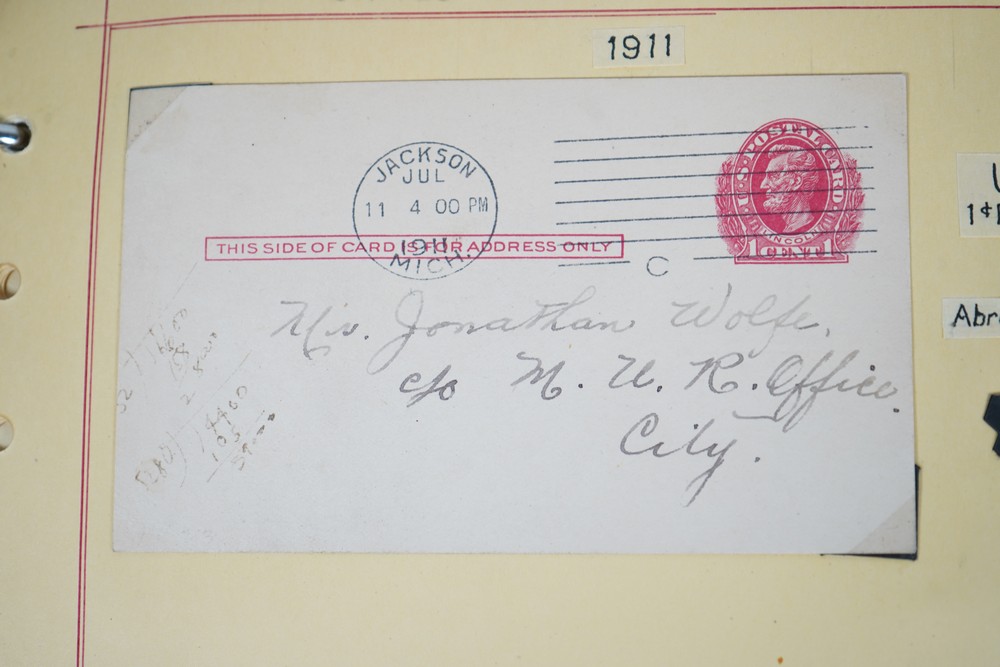 1911
JACKSON
JUL
11 4 00 PM
1911
MICH.
U.S. POSTAL CARD
LINCOLN
1 CENT 1
THIS SIDE OF CARD IS FOR ADDRESS ONLY
C
Mr. Jonathan Wolfe,
c/o M. U. R. Office.
City.
1¢
Abr